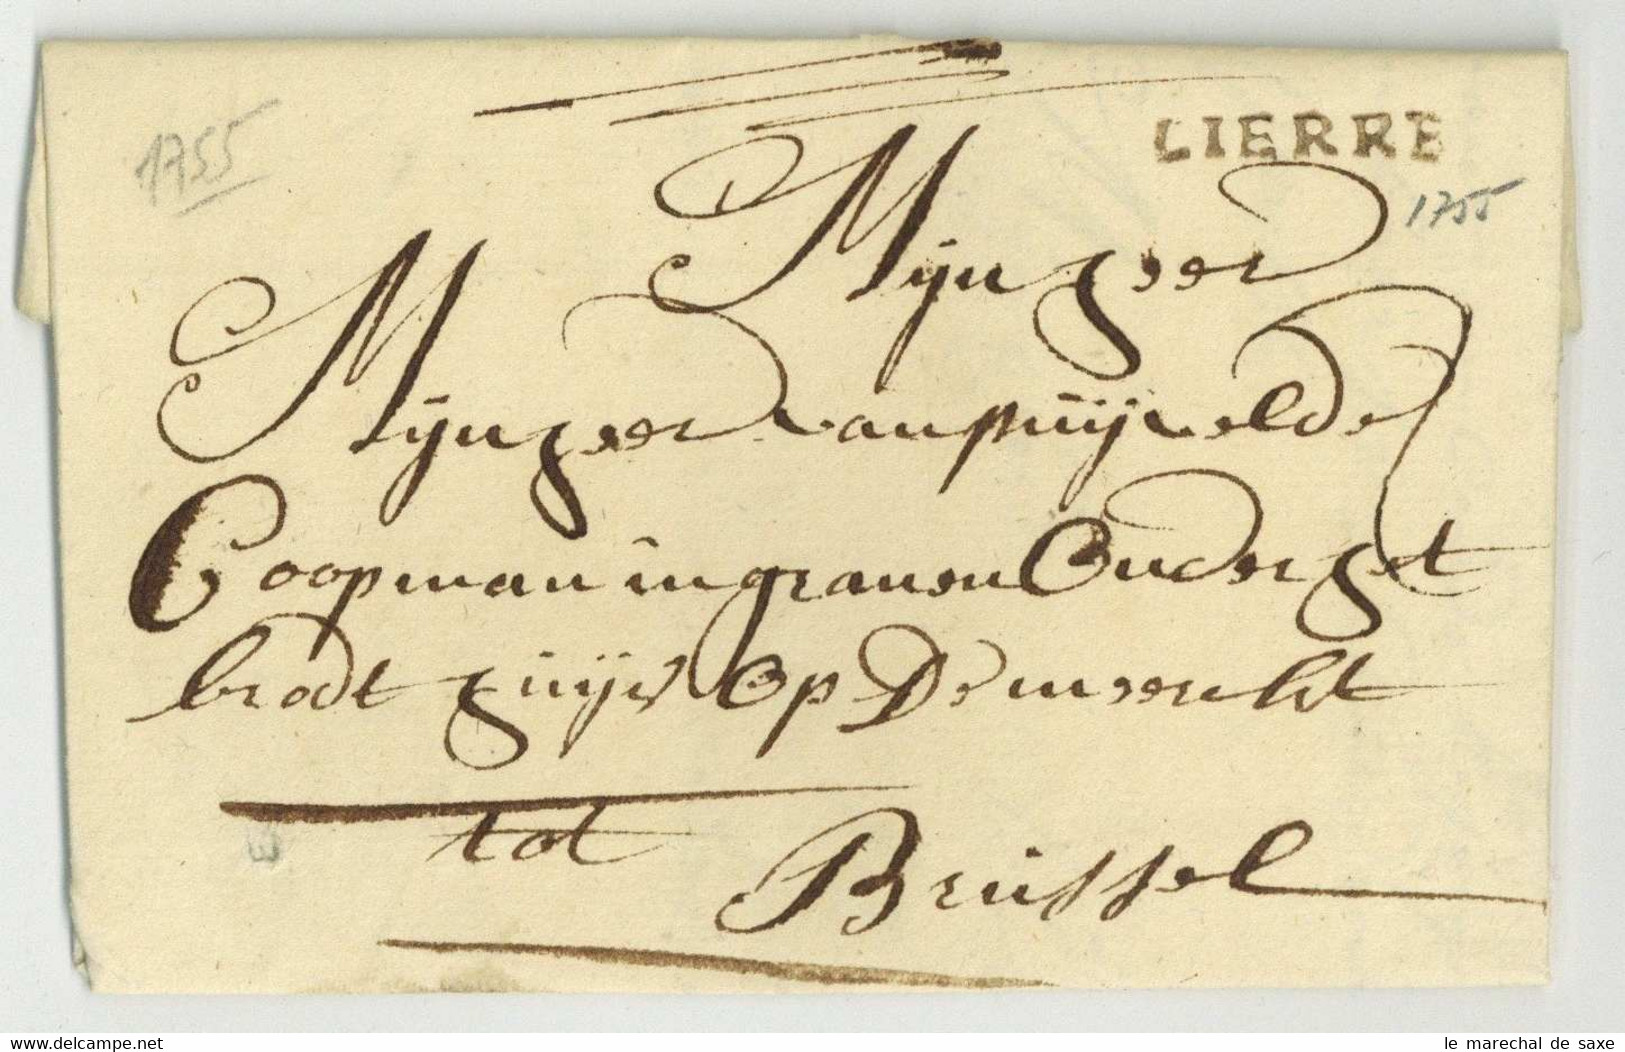 LIERRE
1755
1755
Mijnheer
Mijnheer van puijvelde
Coopman in granen Onder het
brodt huijs Op De merckt
tot
Brussel
Delcampe.net
le marechal de saxe